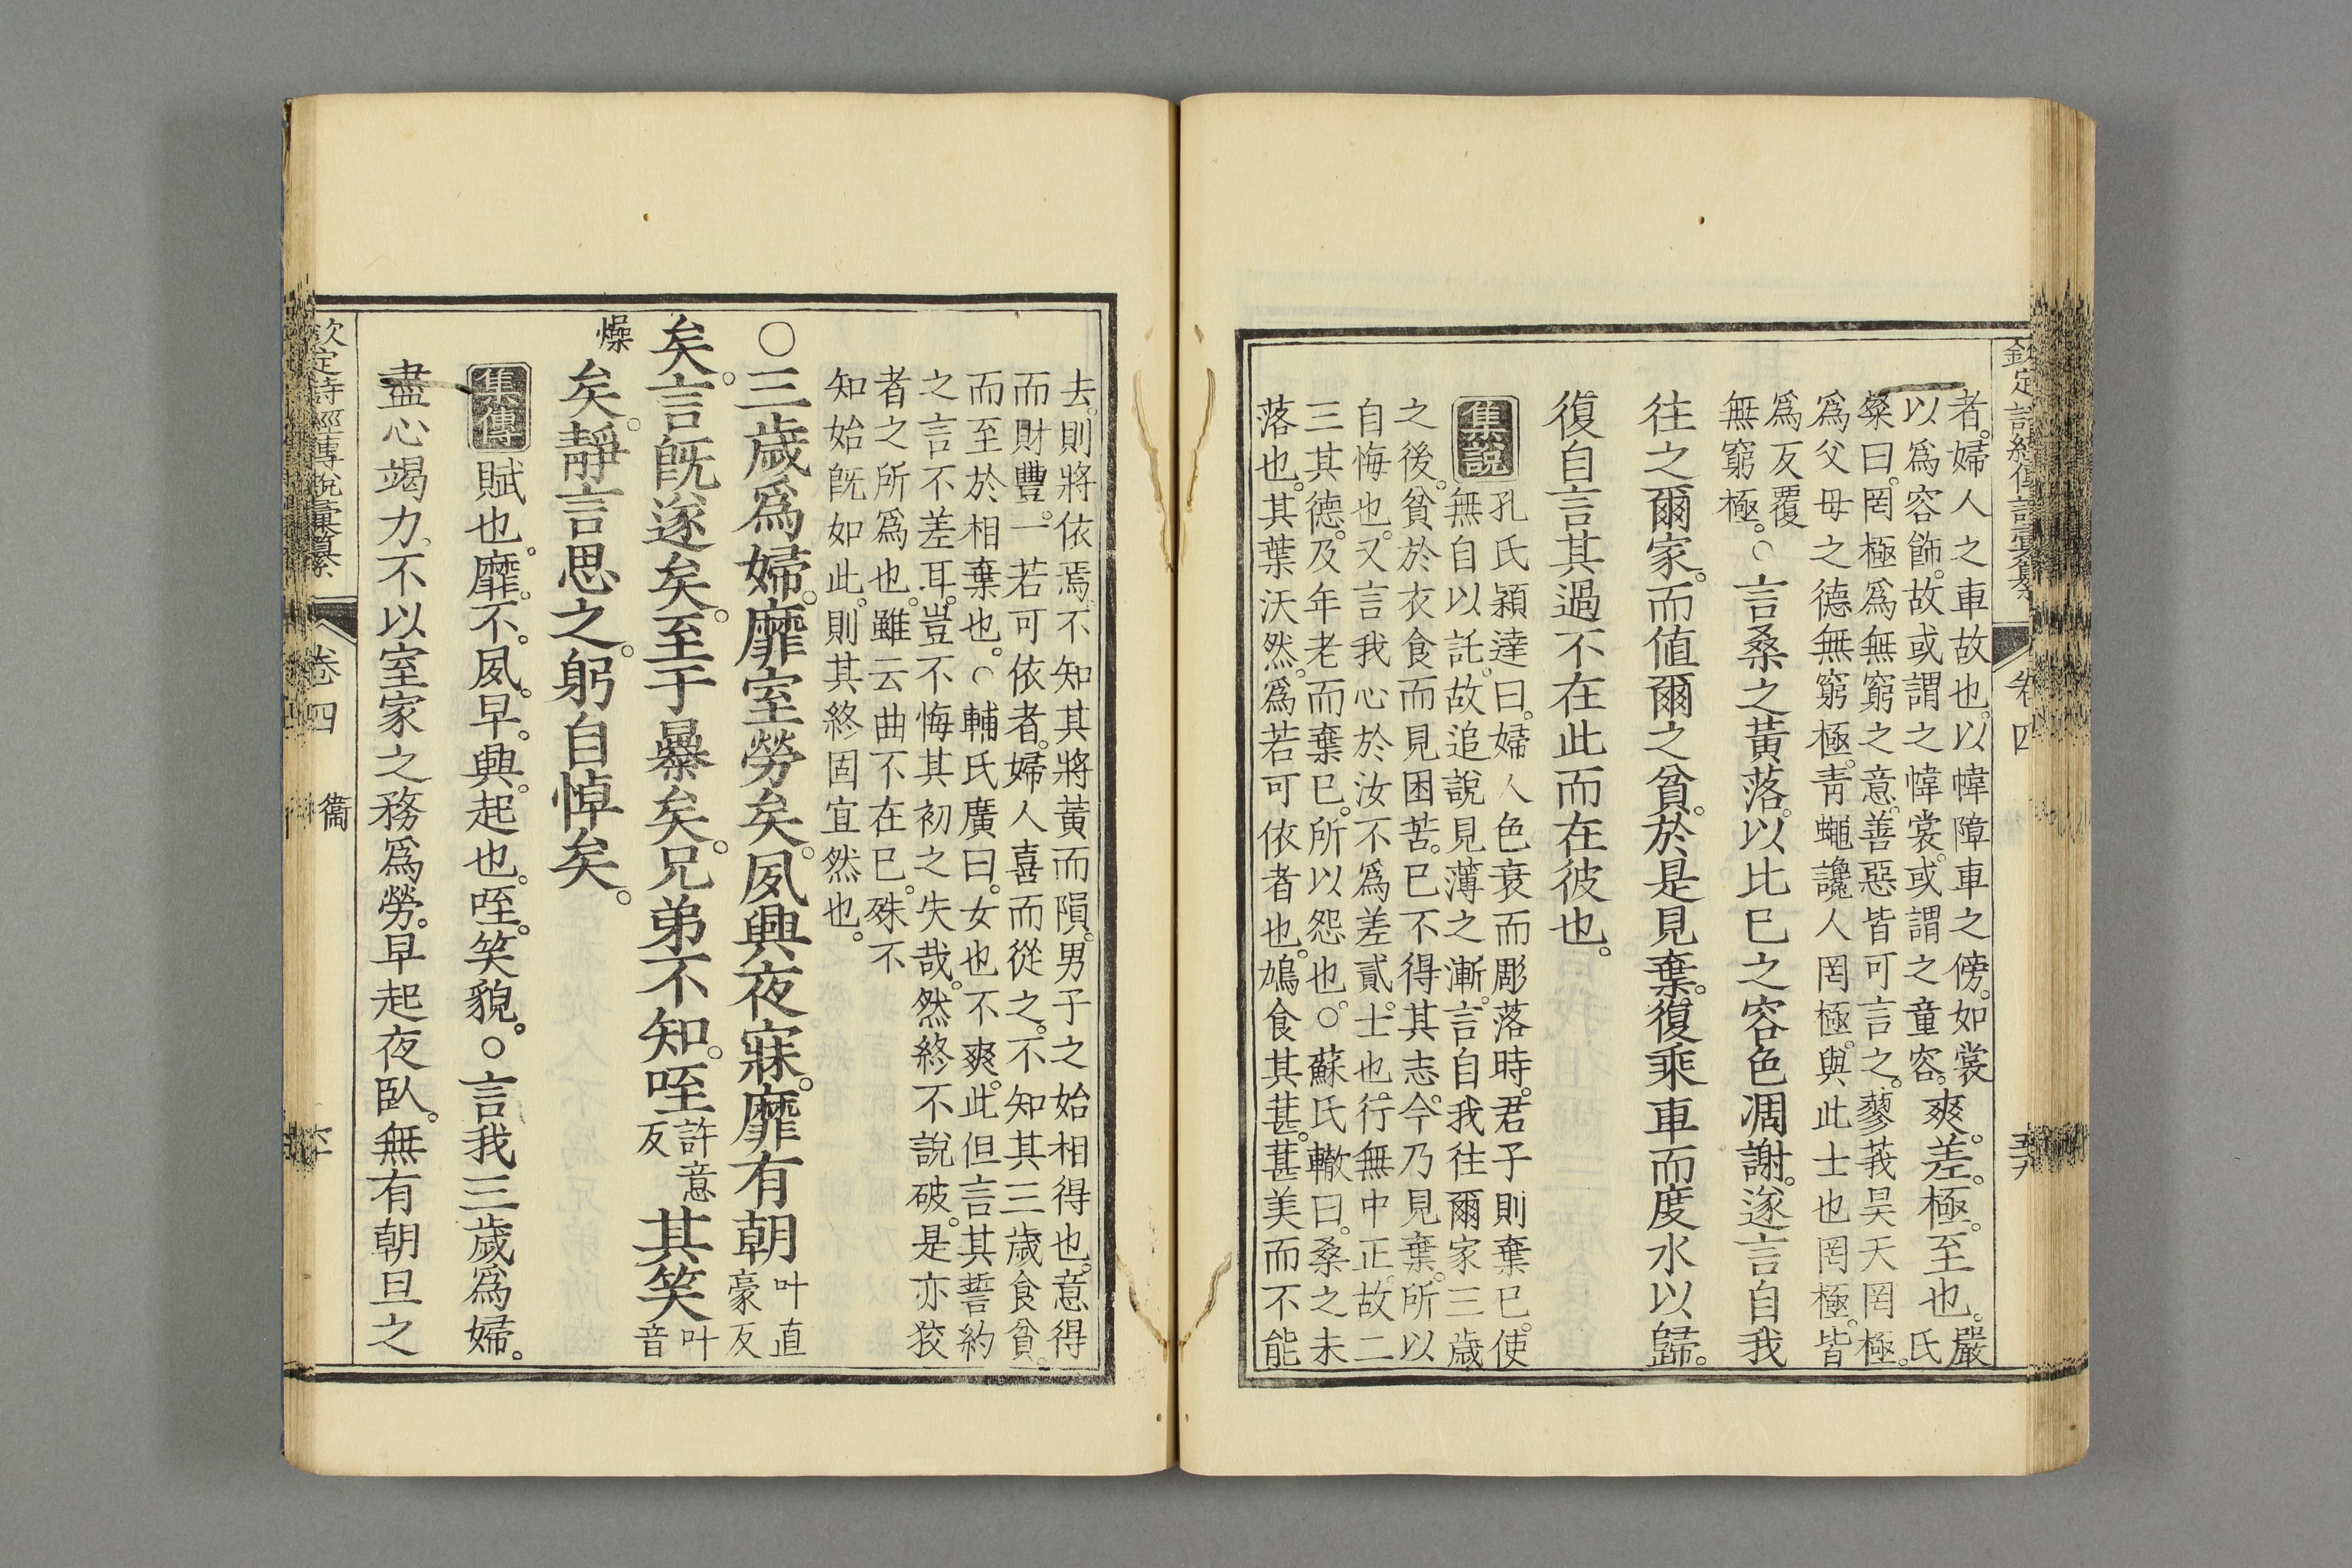 者。婦人之車故也。以幃障車之傍。如裳
以爲容飾。故或謂之幃裳。或謂之童容。
爽。差。極。至也。
嚴氏
粲曰。罔極爲無窮之意。善惡皆可言之。蓼莪昊天罔極。
爲父母之德無窮極。靑蠅讒人罔極。與此士也罔極。皆
爲反覆
無窮極。
○言桑之黃落。以比己之容色凋謝。遂言自我
往之爾家。而値爾之貧。於是見棄。復乘車而度水以歸。
復自言其過不在此而在彼也。
集說
孔氏穎達曰。婦人色衰而彫落時。君子則棄已。使
無自以託。故追說見薄之漸。言自我往爾家三歲
之後。貧於衣食而見困苦。已不得其志。今乃見棄。所以
自悔也。又言我心於汝不爲差貳。士也。行無中正。故二
三其德。及年老而棄已。所以怨也。○蘇氏轍曰。桑之未
落也。其葉沃然。爲若可依者也。鳩食其葚。葚美而不能
欽定詩經傳說彙纂
卷四
去。則將依焉。不知其將黃而隕。男子之始相得也。意得
而財豐。一若可依者。婦人喜而從之。不知其三歲食貧。
而至於相棄也。○輔氏廣曰。女也不爽。此但言其誓約
之言不差耳。豈不悔其初之失哉。然終不說破。是亦狡
者之所爲也。雖云曲不在已。殊不
知始旣如此。則其終固宜然也。
○三歲爲婦。靡室勞矣。夙興夜寐。靡有朝
叶直
豪反
矣。言旣遂矣。至于暴矣。兄弟不知。咥
許意
反
其笑
叶
音
燥
矣。靜言思之。躬自悼矣。
集傳
賦也。靡。不。夙。早。興。起也。咥。笑貌。○言我三歲爲婦。
盡心竭力。不以室家之務爲勞。早起夜臥。無有朝旦之
欽定詩經傳說彙纂
卷四
衞